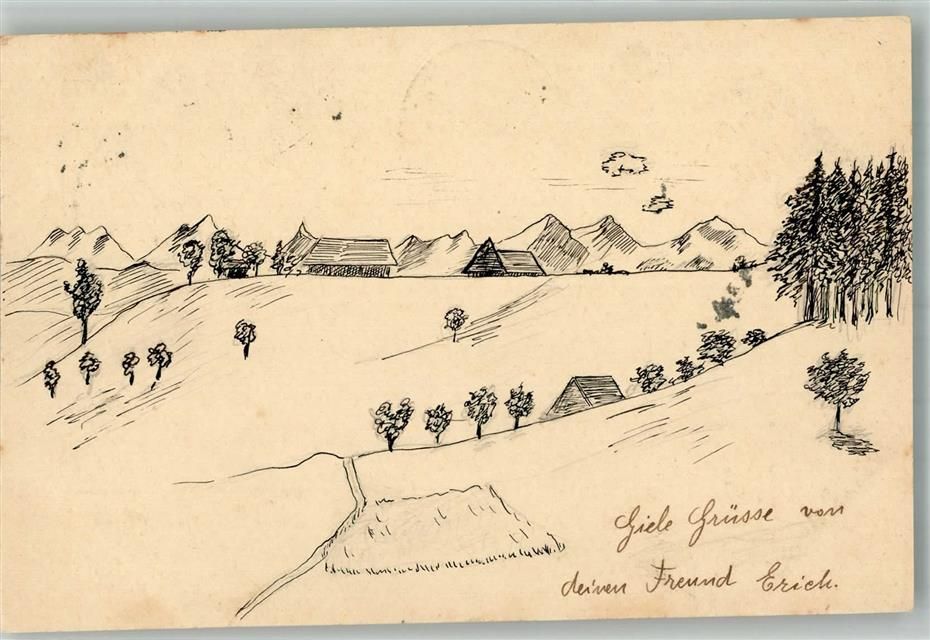 Viele Grüsse von
deinen Freund Erich.